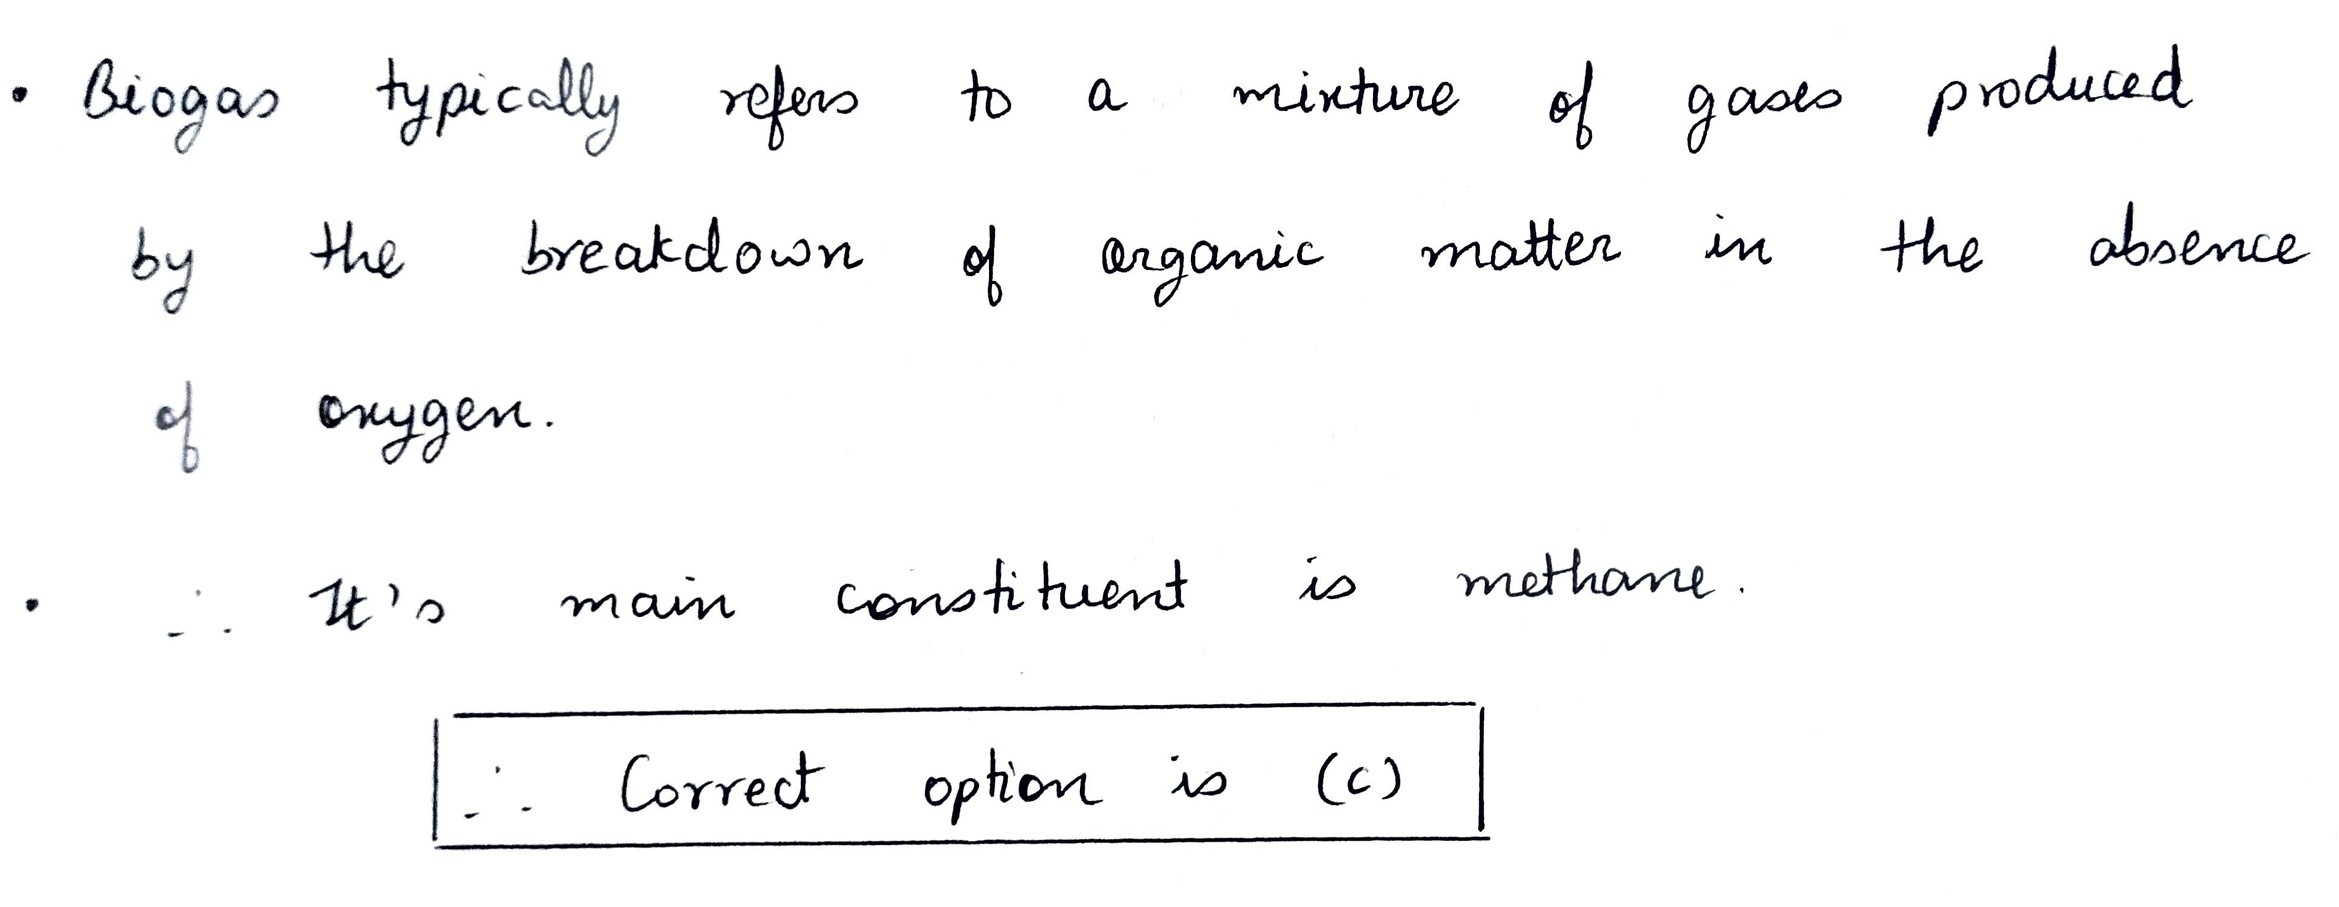 • Biogas typically refers to a mixture of gases produced
by the breakdown of organic matter in the absence
of oxygen.
• ∴ It's main constituent is methane.
∴ Correct option is (c)